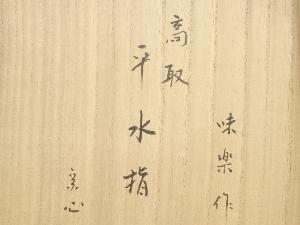 高取
平水指
味楽作